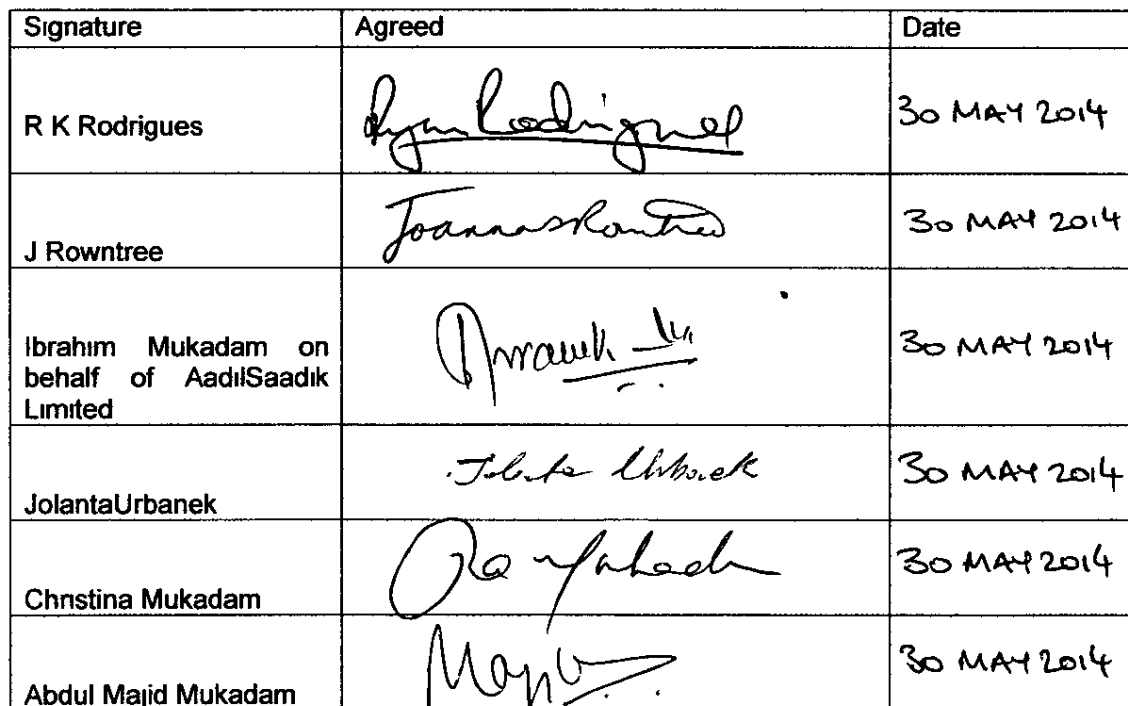 Signature Agreed Date
R K Rodrigues Ryan Rodrigues 30 MAY 2014
J Rowntree Joanna Rowntree 30 MAY 2014
Ibrahim Mukadam on
behalf of AadilSaadik 30 MAY 2014
Limited
JolantaUrbanek Jolanta Urbanek 30 MAY 2014
Christina Mukadam 30 MAY 2014
Abdul Majid Mukadam 30 MAY 2014